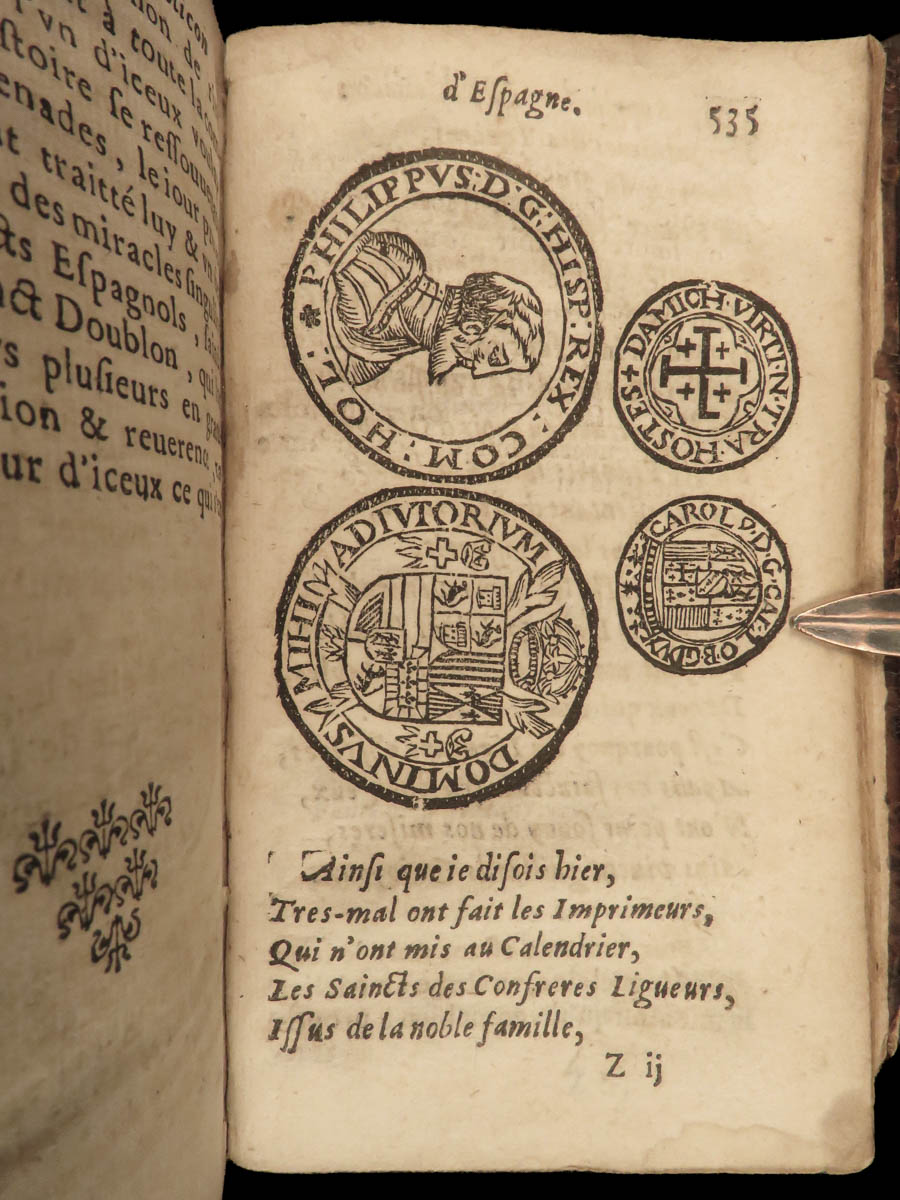 de
à toute la
d'iceux
stoire se
enades, le iour
traitté luy &
des miracles
Espagnols,
Doublon, qui
plusieurs en
ion & reuerence
d'iceux ce qui
d'Espagne.
535
PHILIPPVS·D:G:HISP:REX:COM:HOL:
DAMICH·VIRTI·N·TRA·HOSTES
DOMINVS·MIHI·ADIVTORIVM
CAROL9·D·G·
Ainsi que ie disois hier,
Tres-mal ont fait les Imprimeurs,
Qui n'ont mis au Calendrier,
Les Saincts des Confreres Ligueurs,
Issus de la noble famille,
Z ij